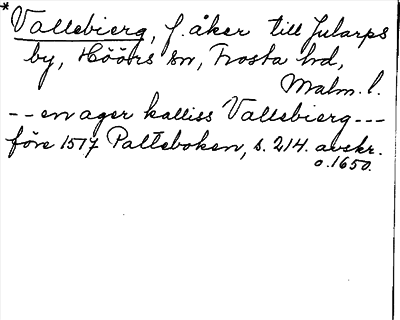 * Vallebierg, f. åker till Jularps
by, Höörs sn, Frosta hd,
Malm. l.
-- en ager kalliss Vallebierg ---
före 1517 Palteboken, s. 214. avskr.
o. 1650.